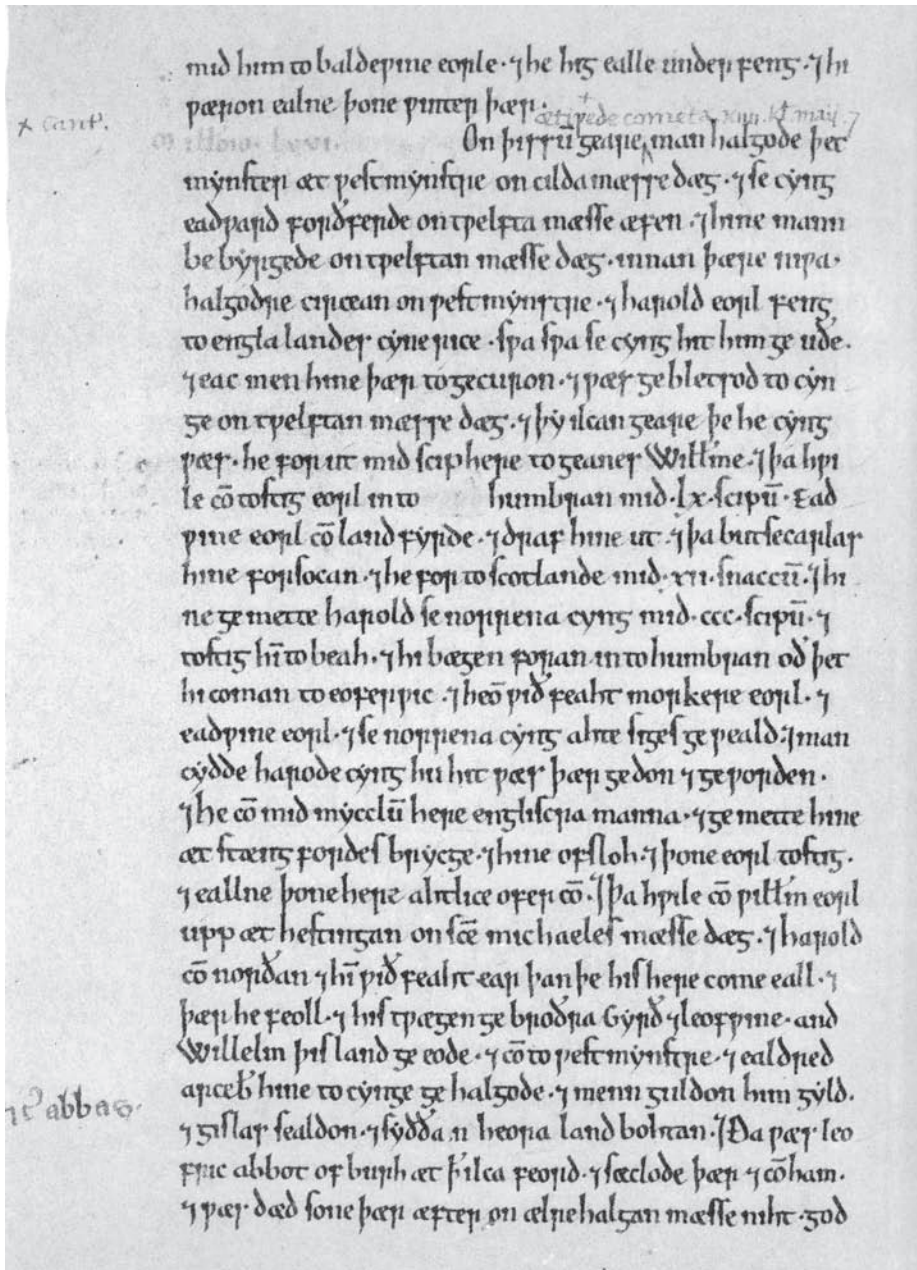 mid him to baldeƿine eorle · ⁊ he hig ealle underfeng · ⁊ hi
ƿæron ealne þone ƿinter þær ·
+ Cant'.
+ ætiƿede cometa xiiii. kl̄. maii. 7
millo̅io. lxvi. On þissū geare man halgode þet
mynster æt ƿestmynstre on cildamæsse dæg · ⁊ se cyng
eadƿard forðferde on tƿelfta mæsse æfen · ⁊ hine mann
bebyrgede on tƿelftan mæsse dæg · innan þære niƿa ·
halgodre circean on ƿestmynstre · ⁊ harold eorl feng
to englalandes cynerice · sƿa sƿa se cyng hit him ge uðe ·
⁊ eac men hine þær to gecuron · ⁊ ƿæs gebletsod to cyn
ge on tƿelftan mæsse dæg · ⁊ þy ilcan geare þe he cyng
ƿæs · he for ut mid sciphere togeanes Willme · ⁊ þa hƿi
le cō tostig eorl into humbran mid · lx · scipū · Ead
ƿine eorl cō landfyrde · ⁊ draf hine ut · ⁊ þa butsecarlas
hine forsocan · ⁊ he for to scotlande mid · xii · snaccū · ⁊ hi
ne gemette harold se norrena cyng mid · ccc · scipū · ⁊
tostig hī to beah · ⁊ hi bægen foran into humbran oð þet
hi coman to eoferƿic · ⁊ heō ƿið feaht morkere eorl · ⁊
eadƿine eorl · ⁊ se norrena cyng alne siges geƿeald · ⁊ man
cydde harode cyng hu hit ƿæs þær gedon ⁊ geƿorden ·
⁊ he cō mid mycclū here engliscra manna · ⁊ gemette hine
æt stængfordes brycge · ⁊ hine ofsloh · ⁊ þone eorl tostig ·
⁊ eallne þone here ahtlice ofer cō · ⁊ þa hƿile cō ƿillm eorl
upp æt hestingan on scē michaeles mæsse dæg · ⁊ harold
cō norðan ⁊ hī ƿið feaht ear þan þe his here come eall · ⁊
þær he feoll · ⁊ his tƿægen gebroðra Gyrð ⁊ leofƿine · and
Willelm þis land ge eode · ⁊ cō to ƿestmynstre · ⁊ ealdred
arceb̄ hine to cynge gehalgode · ⁊ menn guldon him gyld ·
⁊ gislas sealdon · ⁊ syðða n heora land bohtan · ⁊ Ða ƿæs leo
abbas ·
fric abbot of burh æt þ̄ ilca feord · ⁊ sæclode þær ⁊ cō ham ·
⁊ ƿæs dæd sone þær æfter on ælre halgan mæsse niht · god